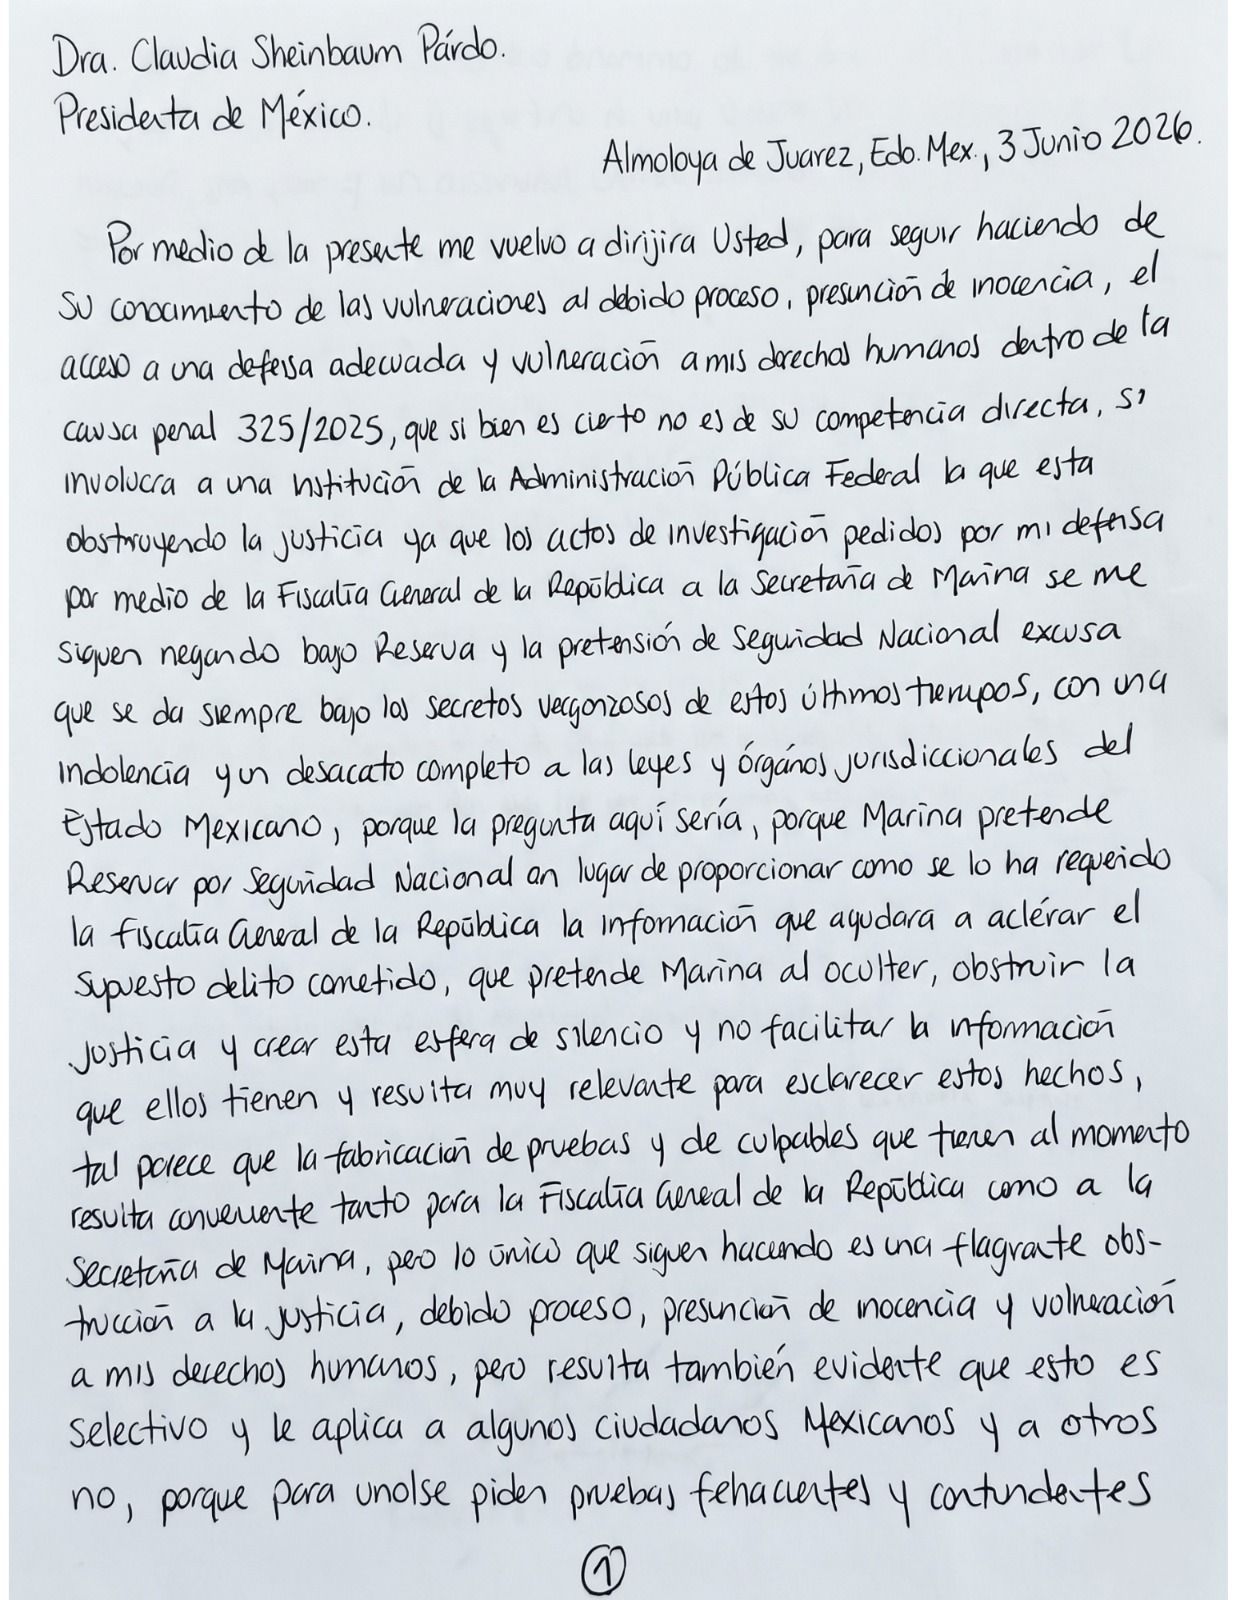 Dra. Claudia Sheinbaum Párdo.
Presidenta de México.
Almoloya de Juarez, Edo. Mex., 3 Junio 2026.
Por medio de la presente me vuelvo a dirijir a Usted, para seguir haciendo de
su conocimiento de las vulneraciones al debido proceso, presunción de inocencia, el
acceso a una defensa adecuada y vulneración a mis derechos humanos dentro de la
causa penal 325/2025, que si bien es cierto no es de su competencia directa, si
involucra a una institución de la Administración Pública Federal la que esta
obstruyendo la justicia ya que los actos de investigación pedidos por mi defensa
por medio de la Fiscalía General de la República a la Secretaría de Marina se me
siguen negando bajo Reserva y la pretensión de Seguridad Nacional excusa
que se da siempre bajo los secretos vergonzosos de estos últimos tiempos, con una
indolencia y un desacato completo a las leyes y órgános jurisdiccionales del
Estado Mexicano, porque la pregunta aquí sería, porque Marina pretende
Reservar por Seguridad Nacional en lugar de proporcionar como se lo ha requerido
la Fiscalía General de la República la información que ayudara a aclérar el
supuesto delito cometido, que pretende Marina al oculter, obstruir la
justicia y crear esta esfera de silencio y no facilitar la información
que ellos tienen y resulta muy relevante para esclarecer estos hechos,
tal parece que la fabricación de pruebas y de culpables que tienen al momento
resulta conveniente tanto para la Fiscalía General de la República como a la
Secretaría de Marina, pero lo único que siguen haciendo es una flagrante obs-
trucción a la justicia, debido proceso, presunción de inocencia y vulneración
a mis derechos humanos, pero resulta también evidente que esto es
selectivo y le aplica a algunos ciudadanos Mexicanos y a otros
no, porque para unos se piden pruebas fehacientes y contundentes
1